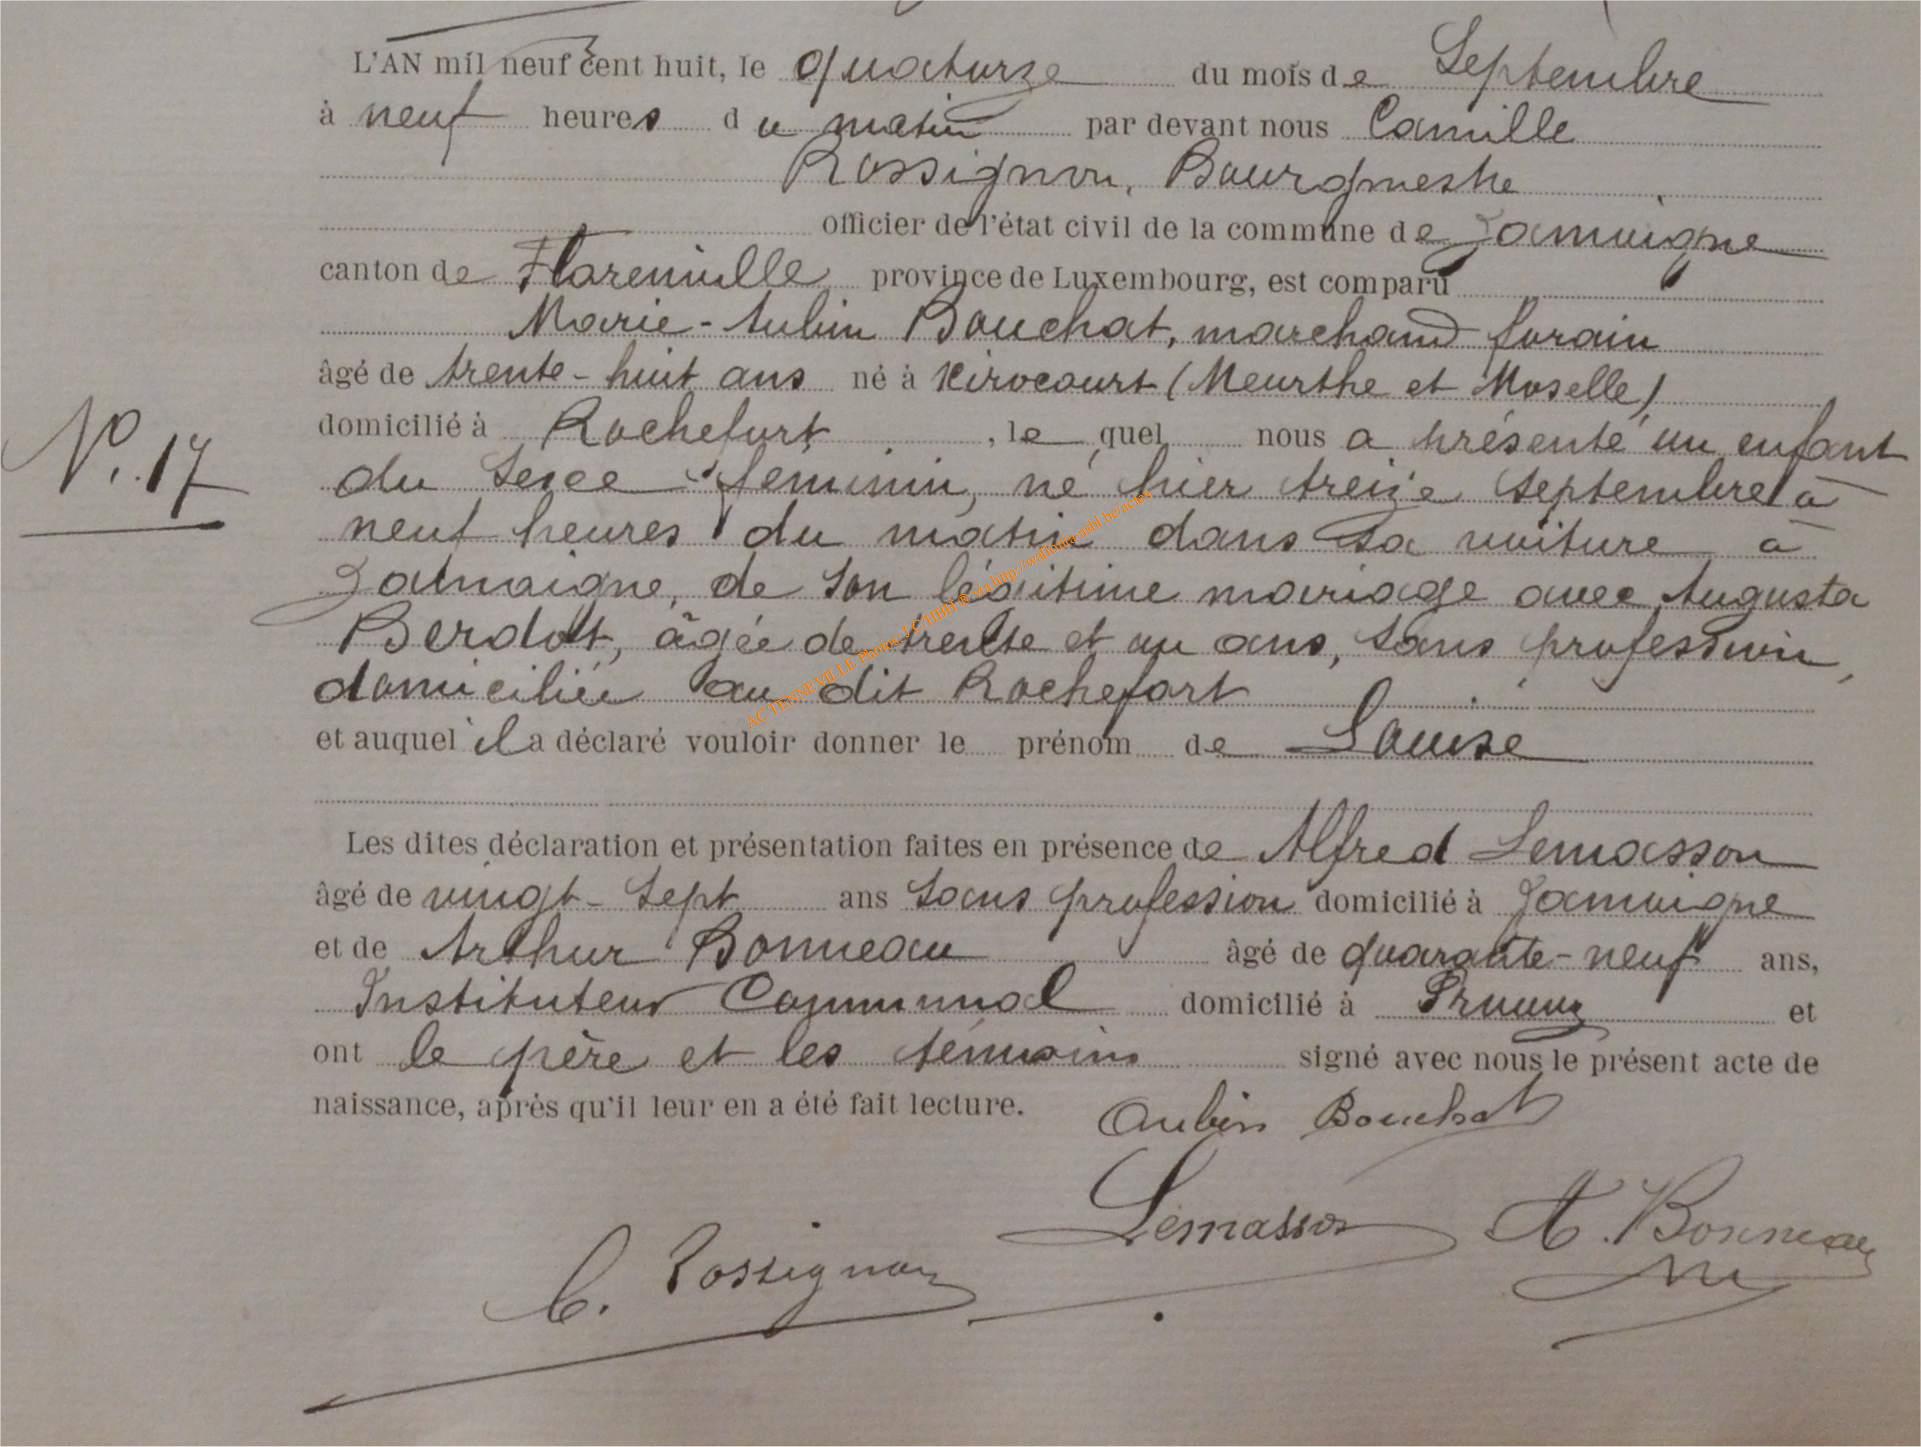 L'AN mil neuf cent huit, le quatorze du mois de Septembre
à neuf heures du matin par devant nous Camille
Rossignon, Bourgmestre
officier de l'état civil de la commune de Jamoigne
canton de Florenville province de Luxembourg, est comparu
Marie-Aubin Bouchat, marchand forain
âgé de trente-huit ans né à Xirocourt (Meurthe et Moselle)
domicilié à Rochefort, lequel nous a présenté un enfant
N° 17
du sexe féminin, né hier treize septembre à
neuf heures du matin dans sa voiture à
Jamoigne, de son légitime mariage avec Augusta
Berdolt, âgée de trente et un ans, sans profession,
domiciliée au dit Rochefort
et auquel il a déclaré vouloir donner le prénom de Louise
Les dites déclaration et présentation faites en présence de Alfred Lemasson
âgé de vingt-sept ans sans profession domicilié à Jamoigne
et de Arthur Bonneau âgé de quarante-neuf ans,
Instituteur Communal domicilié à Prouvy et
ont le père et les témoins signé avec nous le présent acte de
naissance, après qu'il leur en a été fait lecture.
Aubin Bouchat
Lemasson A. Bonneau
C. Rossignon